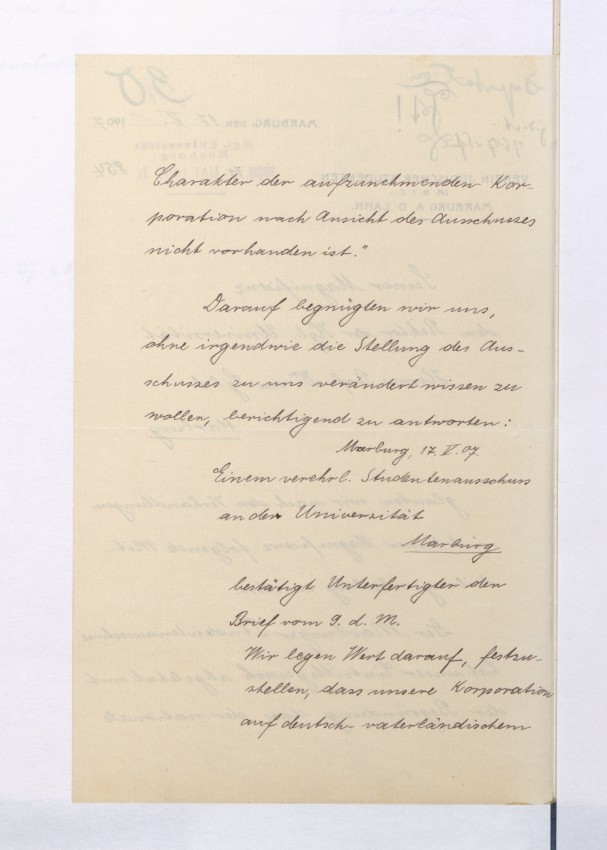 Charakter der aufzunehmenden Kor-
poration nach Ansicht des Ausschusses
nicht vorhanden ist."
Darauf begnügten wir uns,
ohne irgendwie die Stellung des Aus-
schusses zu uns verändert wissen zu
wollen, berichtigend zu antworten:
Marburg, 17. V. 07.
Einem verehrl. Studentenausschuss
an der Universität
Marburg
bestätigt Unterfertigter den
Brief vom 9. d. M.
Wir legen Wert darauf, festzu-
stellen, dass unsere Korporation
auf deutsch-vaterländischem